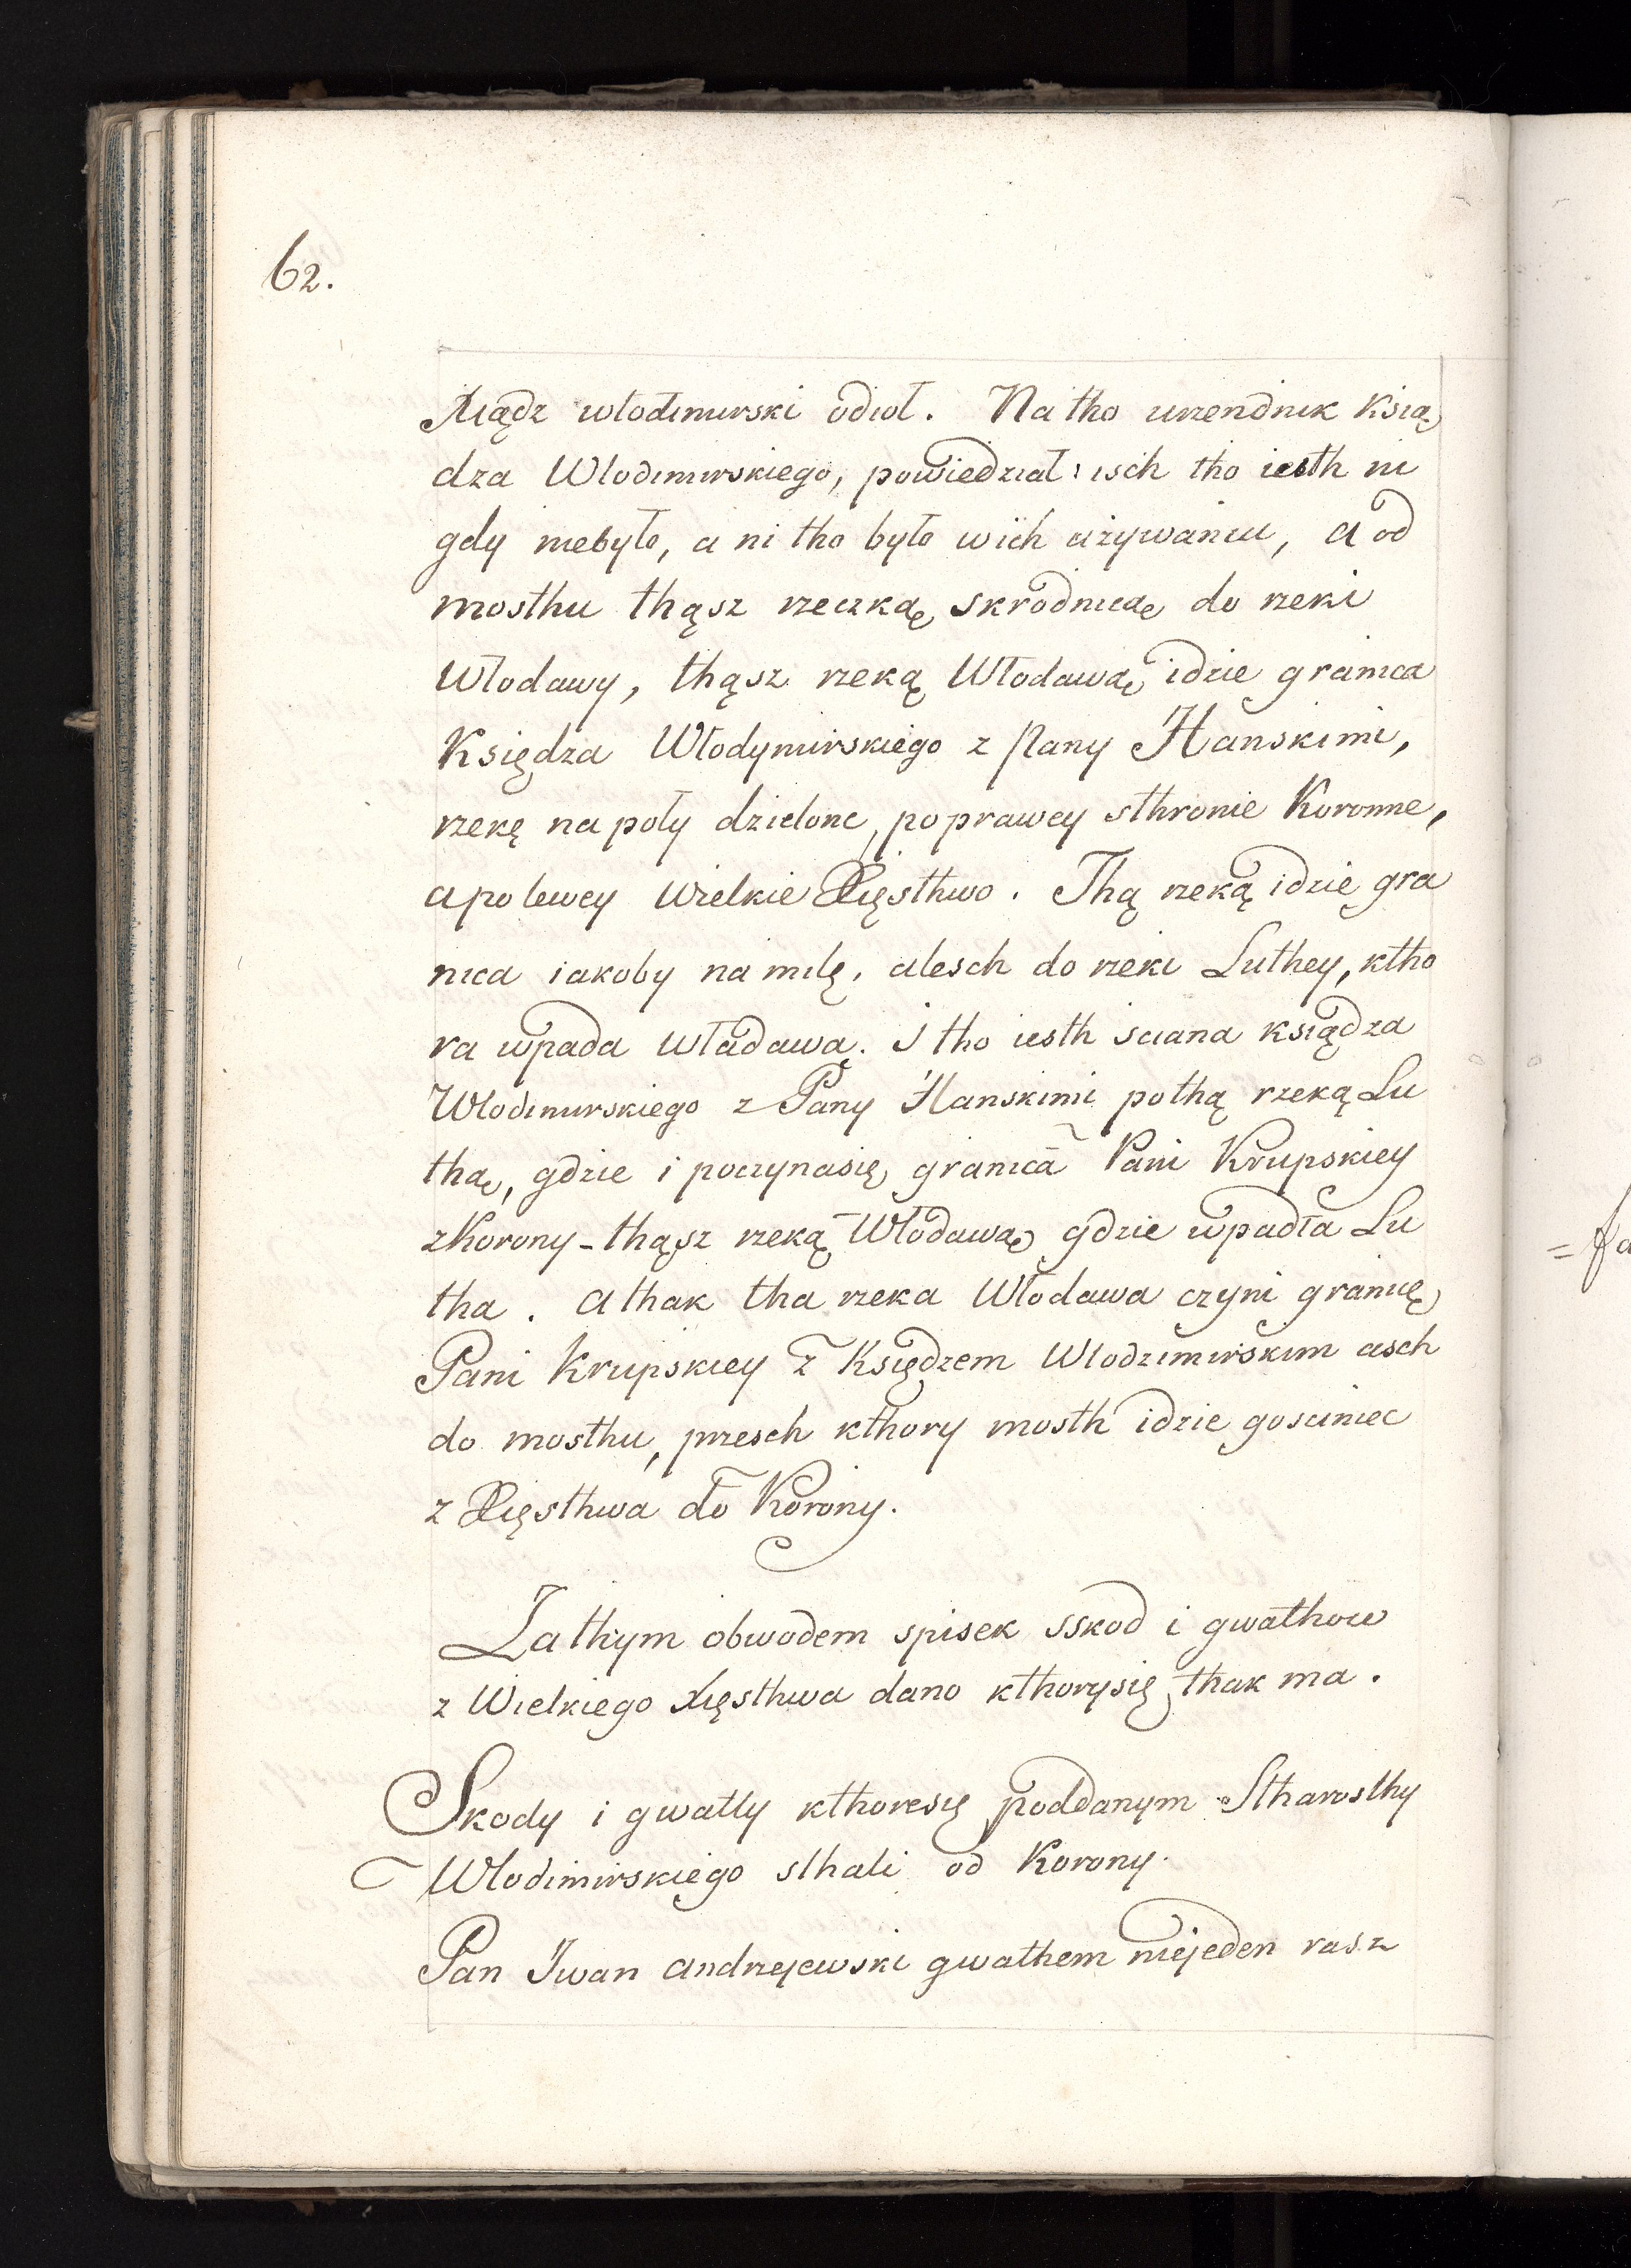 62.
Xiądz włodimirski odioł. Na tho urzendnik Ksią
dza Wlodimirskiego, powiedział: isch tho iesth ni
gdy niebyło, a ni tho było wich użÿwaniu, a od
mosthu thąsz rzeczką skrodnicą do rzeki
Włodawy, thąsz rzeką Włodawą idzie granica
Księdza Włodymirskiego z Pany Hanskimi,
rzekę na poły dzielone, po prawey sthronie Koronne,
a po lewey wielkie Xięsthwo. Thą rzeką idzie gra
nica iakoby na milę, alesch do rzeki Luthey, ktho
ra wpada Władawą. I tho iesth sciana ksiądza
Wlodimirskiego z Pany Hanskimi pothą rzeką Lu
thą, gdzie i poczynasię granica Pani Krupskiey
zKorony - thąsz rzeką Włodawą gdzie wpadła Lu
tha. A thak tha rzeka Włodawa czyni granicę
Pani Krupskiey z Księdzem Wlodzimirskim asch
do mosthu, przesch kthory mosth idzie gosciniec
z Xięsthwa do Korony.
Zathym obwodem spisek sskod i gwałthow
z Wielkiego Xięsthwa dano kthorysię thak ma.
Skody i gwałty kthoresię poddanym Stharosthy
Wlodimirskiego sthali od Korony.
Pan Iwan Andrzejewski gwałthem niejeden rasz
=